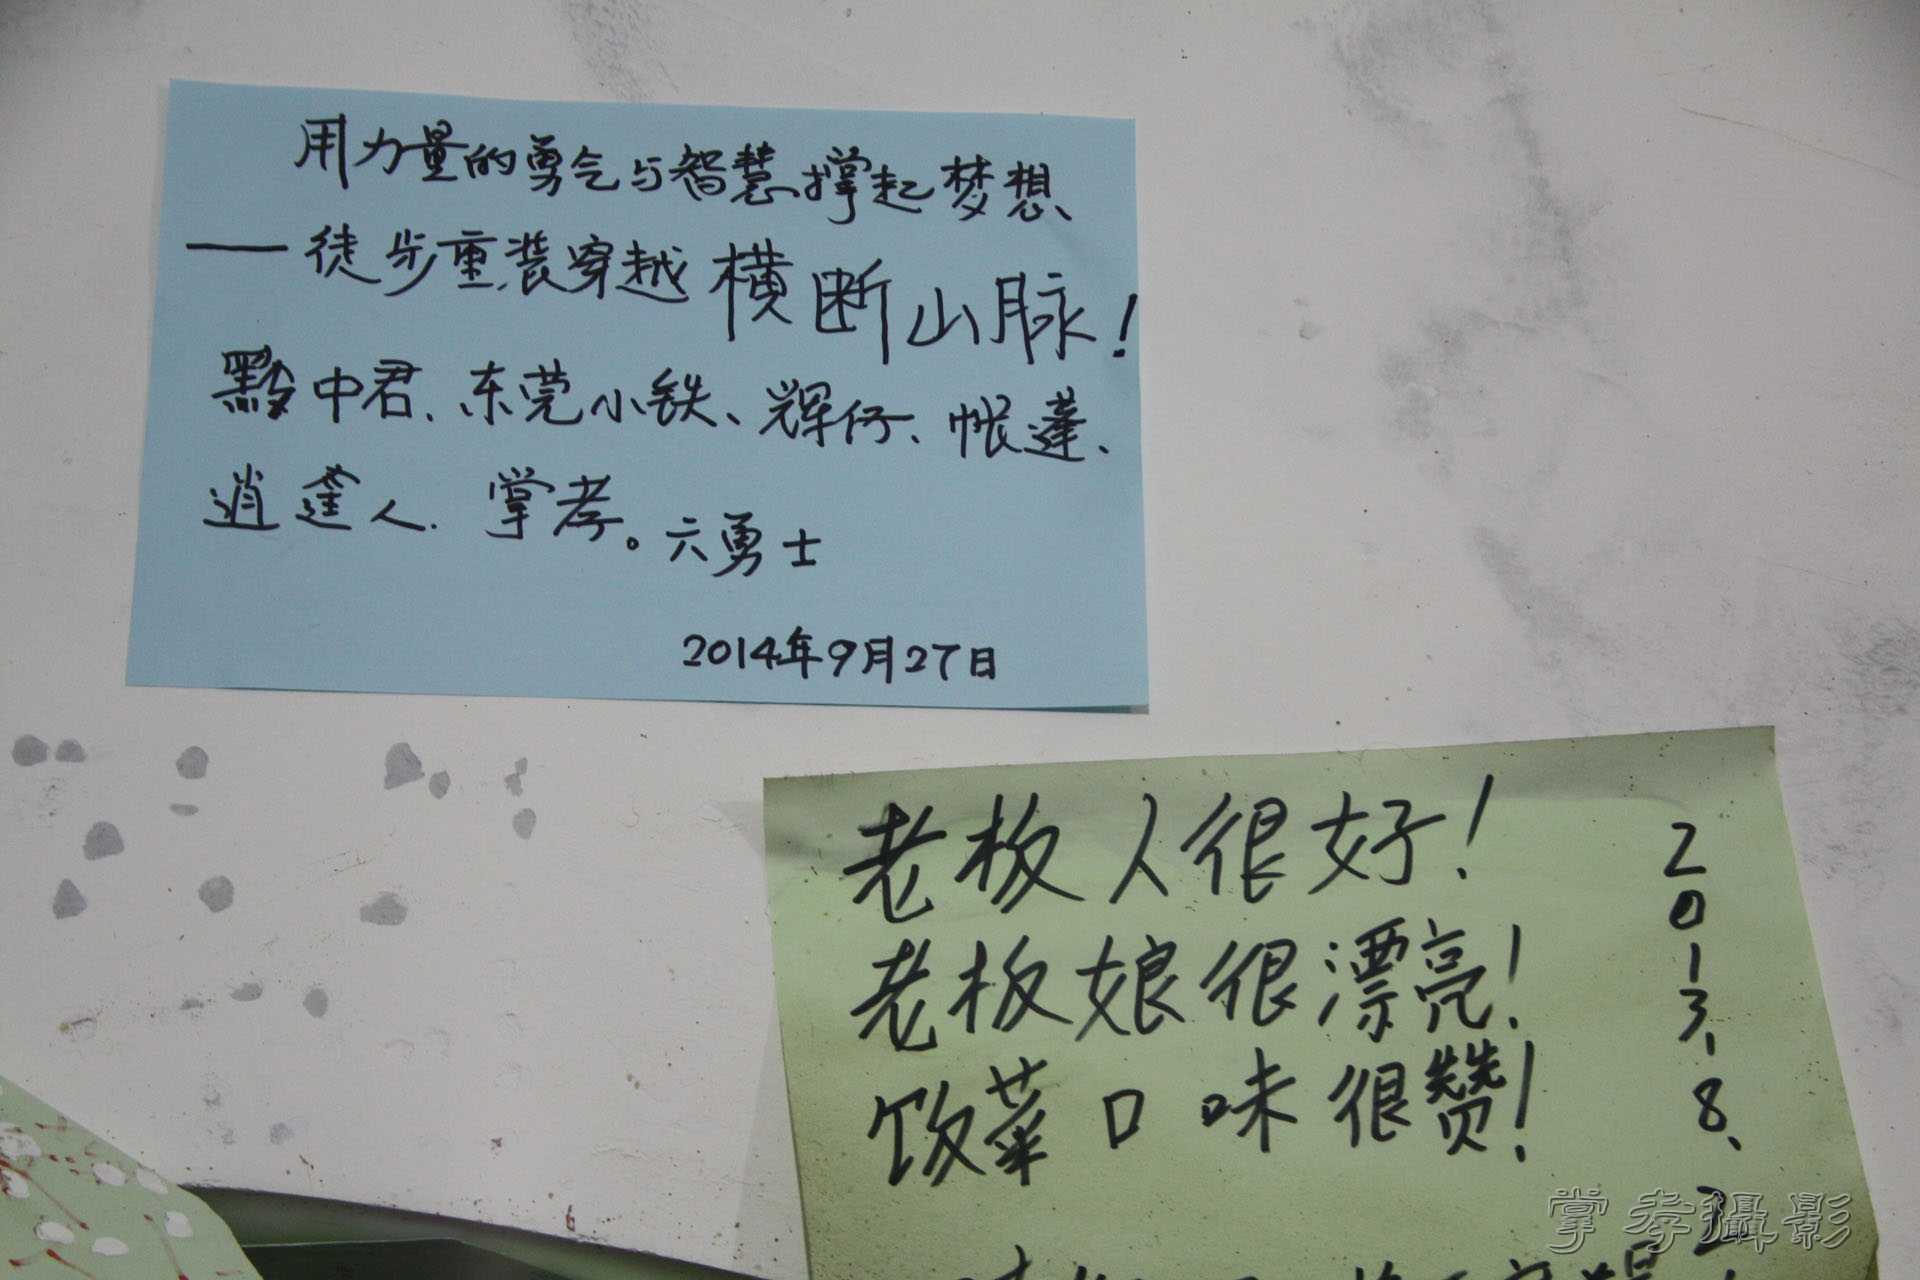 用力量的勇气与智慧撑起梦想
——徒步重装穿越横断山脉!
黔中君、东莞小铁、辉仔、帐蓬、
逍遥人、掌孝。六勇士
2014年9月27日
老板人很好!
老板娘很漂亮!
饭菜口味很赞!
2013.8.2
掌孝攝影